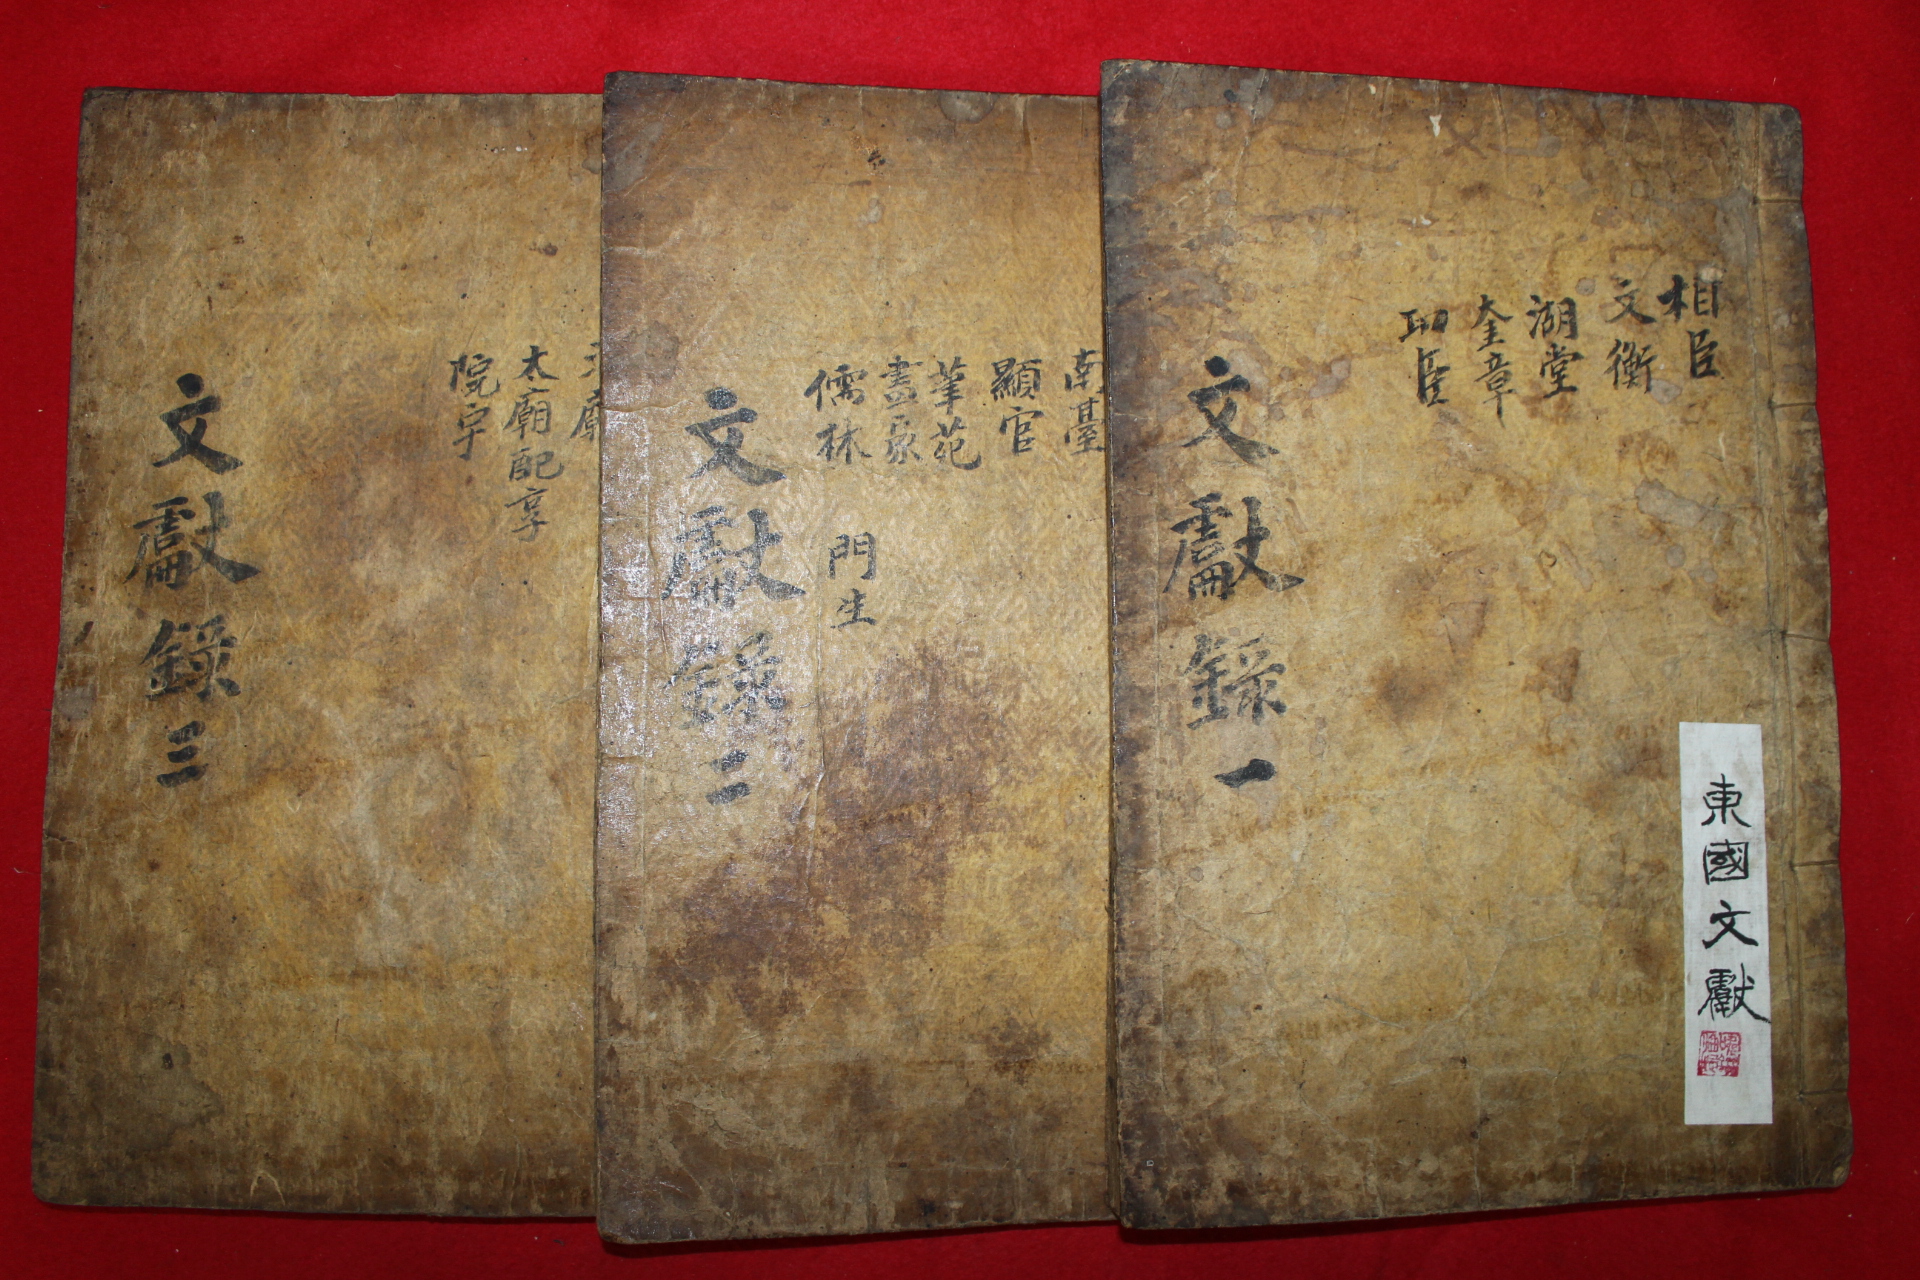 相臣
文衡
湖堂
奎章
功臣
文獻錄一
東國文獻
南臺
顯官
筆苑
畫家
儒林
門生
文獻錄二
太廟配享
院宇
文獻錄三